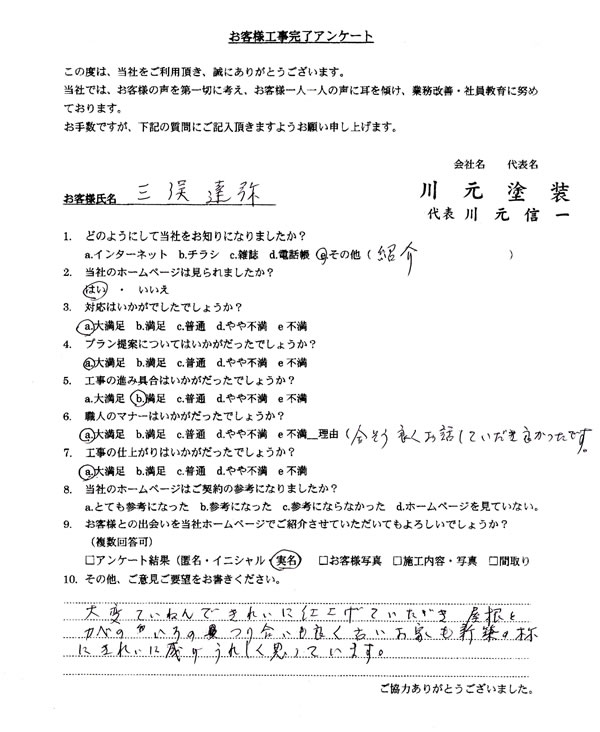 お客様工事完了アンケート
この度は、当社をご利用頂き、誠にありがとうございます。
当社では、お客様の声を第一切に考え、お客様一人一人の声に耳を傾け、業務改善・社員教育に努め
ております。
お手数ですが、下記の質問にご記入頂きますようお願い申し上げます。
会社名 代表名
川元塗装
代表 川元信一
お客様氏名 三俣達弥
1. どのようにして当社をお知りになりましたか?
a.インターネット b.チラシ c.雑誌 d.電話帳 eその他 ( 紹介 )
2. 当社のホームページは見られましたか?
はい ・ いいえ
3. 対応はいかがでしたでしょうか?
a.大満足 b.満足 c.普通 d.やや不満 e 不満
4. プラン提案についてはいかがだったでしょうか?
a.大満足 b.満足 c.普通 d.やや不満 e 不満
5. 工事の進み具合はいかがだったでしょうか?
a.大満足 b.満足 c.普通 d.やや不満 e 不満
6. 職人のマナーはいかがだったでしょうか?
a.大満足 b.満足 c.普通 d.やや不満 e 不満__理由 ( 良くお話していただき良かったです。
7. 工事の仕上がりはいかがだったでしょうか?
a.大満足 b.満足 c.普通 d.やや不満 e 不満
8. 当社のホームページはご契約の参考になりましたか?
a.とても参考になった b.参考になった c.参考にならなかった d.ホームページを見ていない。
9. お客様との出会いを当社ホームページでご紹介させていただいてもよろしいでしょうか?
(複数回答可)
□アンケート結果 (匿名・イニシャル・実名) □お客様写真 □施工内容・写真 □間取り
10. その他、ご意見ご要望をお書きください。
大変ていねんできれいに仕上げていただき 屋根と
カベの いろの つり合いも良く古いお家も新築の様
にきれいに成りうれしく思っています。
ご協力ありがとうございました。